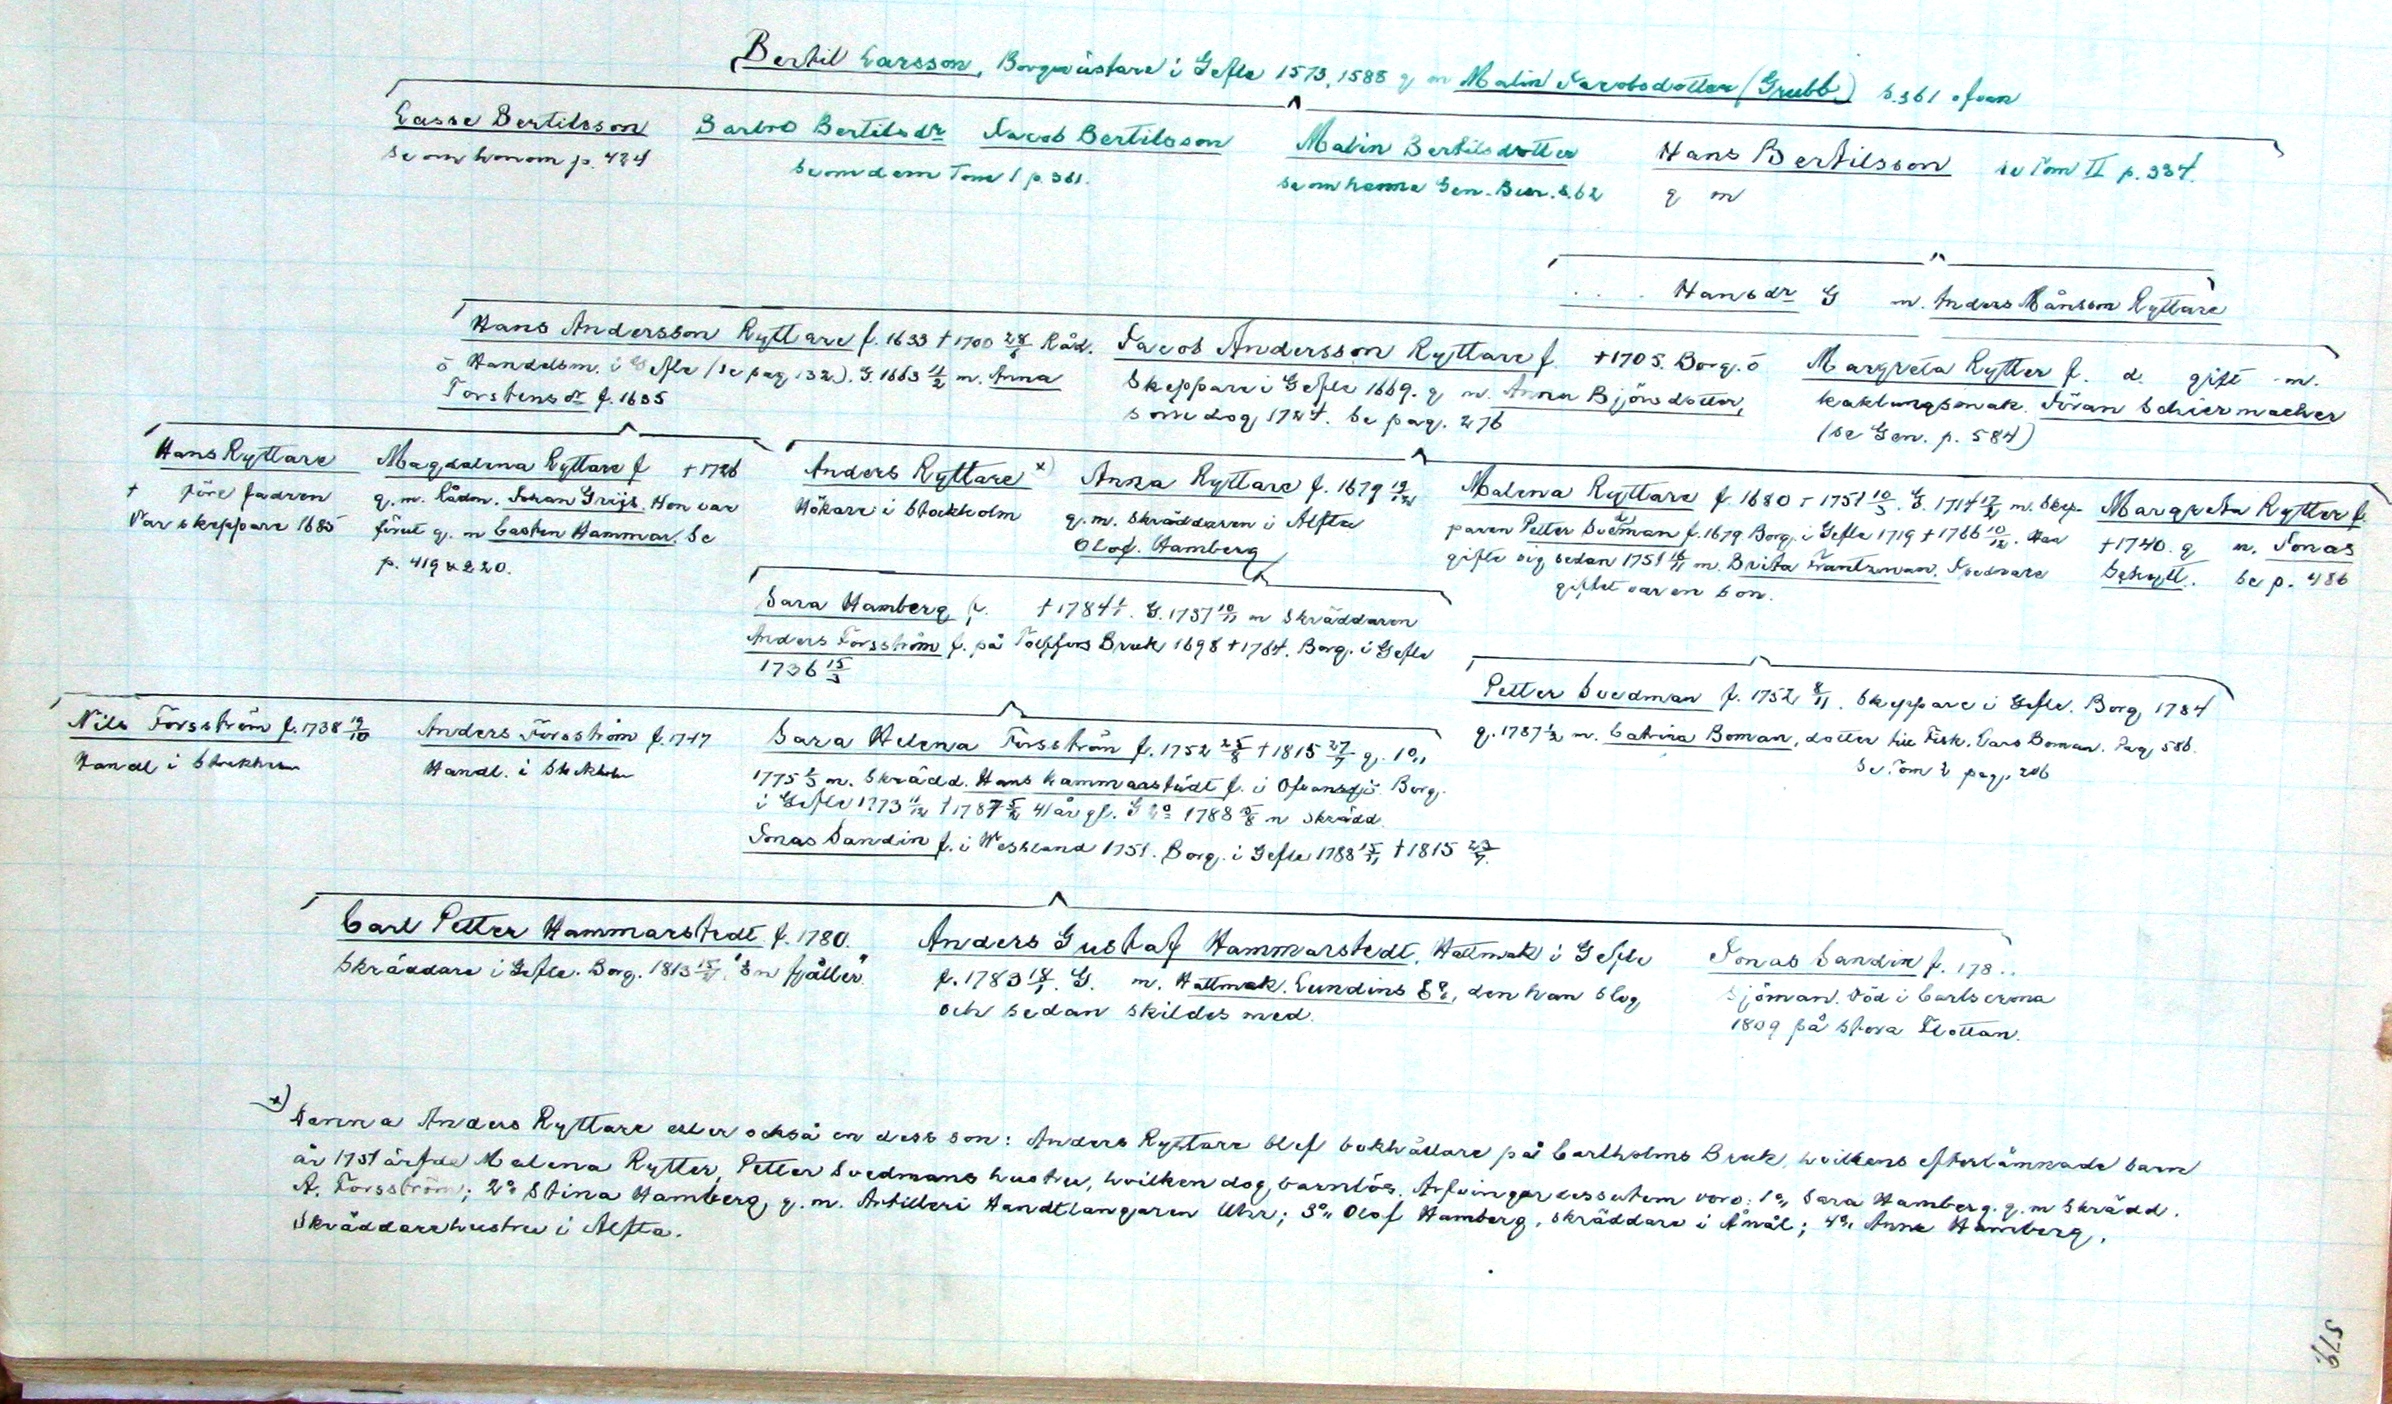 Bertil Larsson, Borgmästare i Gefle 1573, 1588 g m Malin Jacobsdotter (Grubb) s. 361 ofvan
Lasse Bertilsson
se om honom p. 424
Barbro Bertilsdr Jacob Bertilsson
se om dem Tom 1 p. 361.
Malin Bertilsdotter
se om henne Gen. Bur. s. 62
Hans Bertilsson se Tom II p. 334.
g m
. . . Hansdr G m. Anders Månsson Ryttare
Hans Andersson Ryttare f. 1633 † 1700 28/6 Råd.
o Handelsm. i Gefle (se pag 132). G. 1663 11/2 m. Anna
Torstensdr f. 1635
Jacob Andersson Ryttare f. † 1705. Borg. o
Skeppare i Gefle 1669. g m. Anna Bjönsdotter,
som dog 1724. Se pag. 276
Margreta Rytter f. d. gift m.
kaklungsmak. Jöran Schiermacher
(se Gen. p. 584)
Hans Ryttare
† före fadren
Var skeppare 1685
Magdalena Ryttare f † 1726
g. m. Rådm. Johan Grijs. Hon var
förut g. m Casten Hammar. Se
p. 419 & 220.
Anders Ryttare x)
Hökare i Stockholm
Anna Ryttare f. 1679 19/12
g. m. Skräddaren i Alfta
Olof. Hamberg
Malena Ryttare f. 1680 † 1751 10/5. G. 1714 17/2 m. Skep-
paren Petter Svedman f. 1679 Borg. i Gefle 1719 † 1766 10/12. Han
gifte sig sedan 1751 16/11 m. Brita Frantzman. I sednare
giftet var en son.
Margreta Rytter f.
† 1740. g m. Jonas
Schytt. Se p. 486
Sara Hamberg f. † 1784 1/1. G. 1737 10/11 m Skräddaren
Anders Forsström f. på Tolffors Bruk 1698 † 1764. Borg. i Gefle
1736 15/3
Petter Svedman f. 1752 8/11. Skeppare i Gefle. Borg. 1784
g. 1787 1/2 m. Catrina Boman, dotter till Fisk. Lars Boman. Pag 586.
Se Tom 2 pag. 206
Nils Forsström f. 1738 19/10
Handl i Stockholm
Anders Forsström f. 1747
Handl. i Stockholm
Sara Helena Forsström f. 1752 25/8 † 1815 27/7 g. 1o,,
1775 2/3 m. Skrädd. Hans Hammarstedt f. i Ofvansjö. Borg.
i Gefle 1773 11/12 † 1787 5/2 41 år gl. G 2o 1788 5/8 m skrädd.
Jonas Sandin f. i Wessland 1751. Borg. i Gefle 1788 15/11 † 1815 23/7.
Carl Petter Hammarstedt f. 1780.
Skräddare i Gefle. Borg. 1813 15/. "Sm fjäller"
Anders Gustaf Hammarstedt. Hattmak i Gefle
f. 1783 18/1. G. m. Hattmak. Lundins Eo, den han slog
och sedan skildes med.
Jonas Sandin f. 178..
Sjöman. Död i Carlscrona
1809 på Stora Flottan.
x) Denna Anders Ryttare eller också en dess son: Anders Ryttare blef bokhållare på Carlholms Bruk, hvilkens efterlämnade barn
år 1751 ärfde Malena Rytter, Petter Svedmans hustru, hvilken dog barnlös. Arfvingar dessutom voro: 1o,, Sara Hamberg. g. m Skrädd.
A. Forsström; 2o Stina Hamberg, g. m. Artilleri Handtlangaren Uhr; 3o,, Olof Hamberg, skräddare i Åmål; 4o,, Anna Hamberg,
Skräddarehustru i Alfta.
579.